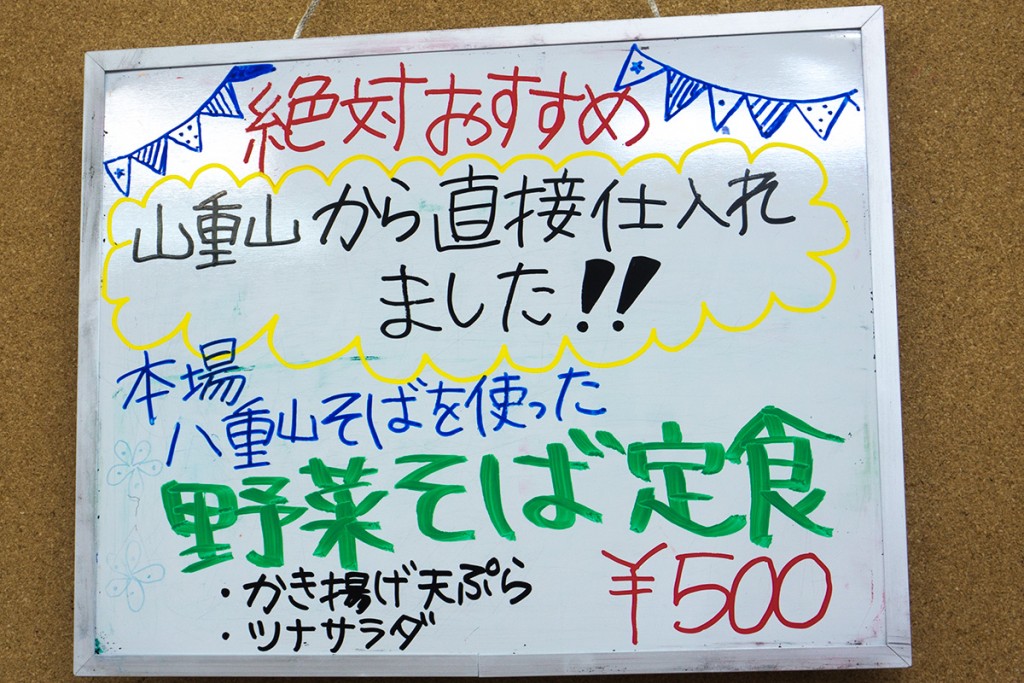 絶対おすすめ
山重山から直接仕入れ
ました!!
本場
八重山そばを使った
野菜そば定食
・かき揚げ天ぷら
・ツナサラダ
¥500